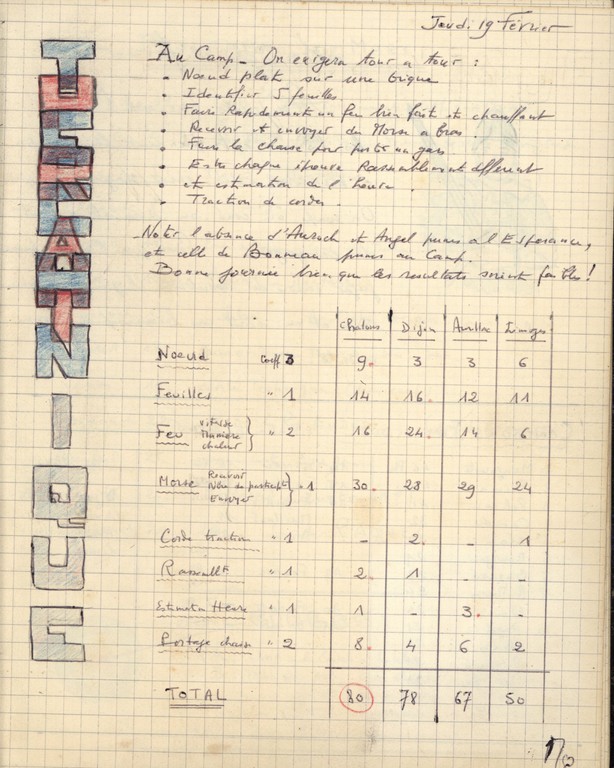 Jeudi 19 Février
Au Camp - On exigera tour à tour :
• Noeud plat sur une brique
• Identifier 5 feuilles
• Faire Rapidement un feu bien fait et chauffant
• Recevoir et envoyer du Morse à bras.
• Faire la chaise pour porter un gars
• Entre chaque épreuve Rassemblement différent
• et estimation de l'heure.
• Traction de cordes.
Noter l'absence d'Auroch et Angel punis à l'Espérance,
et celle de Bonneau punis au Camp.
Bonne journée bien que les resultats soient faibles!
Chalons Dijon Aurillac Limoges
Noeud Coeff 3 9. 3 3 6
Feuilles " 1 14 16. 12 11
Feu vitesse lumière chaleur } " 2 16 24. 14 6
Morse Recevoir Nbre de participts Envoyer } " 1 30. 28 29 24
Corde traction " 1 - 2. - 1
Rassemblt " 1 2. 1 - -
Estimation Heure " 1 1 - 3. -
Portage chaise " 2 8. 4 6 2
TOTAL 80 78 67 50